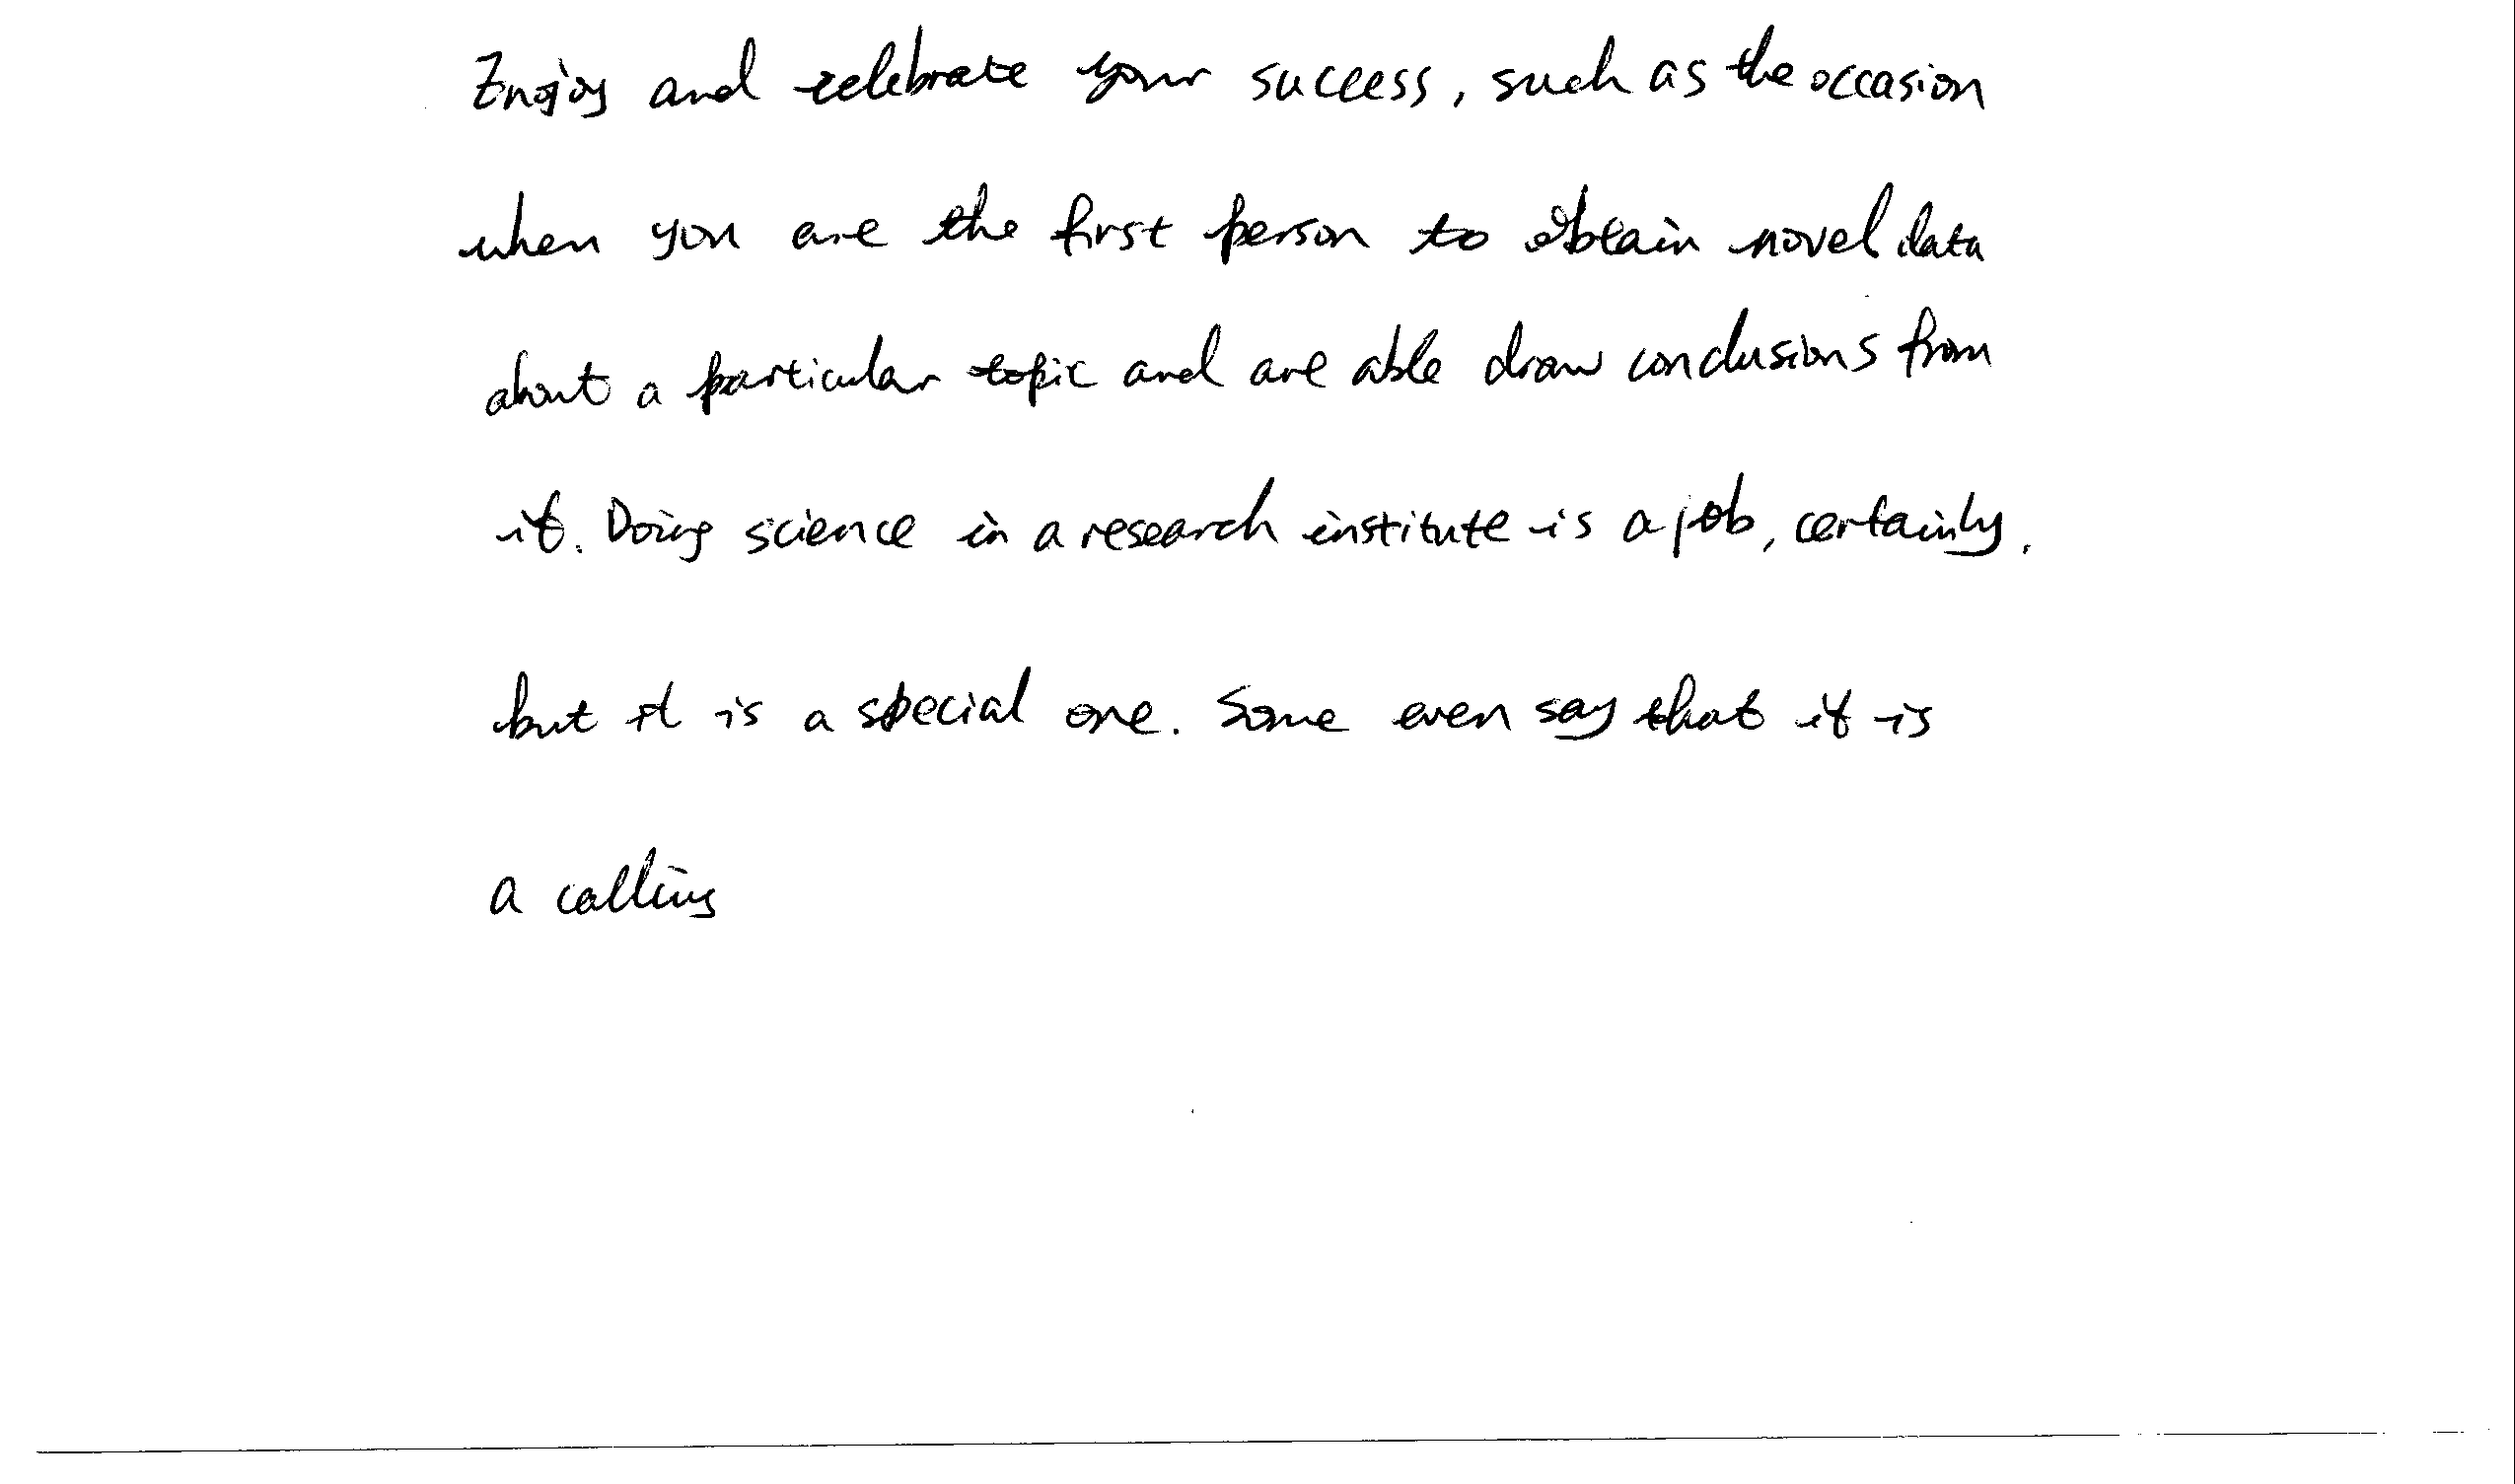 Enjoy and celebrate your success, such as the occasion
when you are the first person to obtain novel data
about a particular topic and are able draw conclusions from
it. Doing science in a research institute is a job, certainly,
but it is a special one. Some even say that it is
a calling